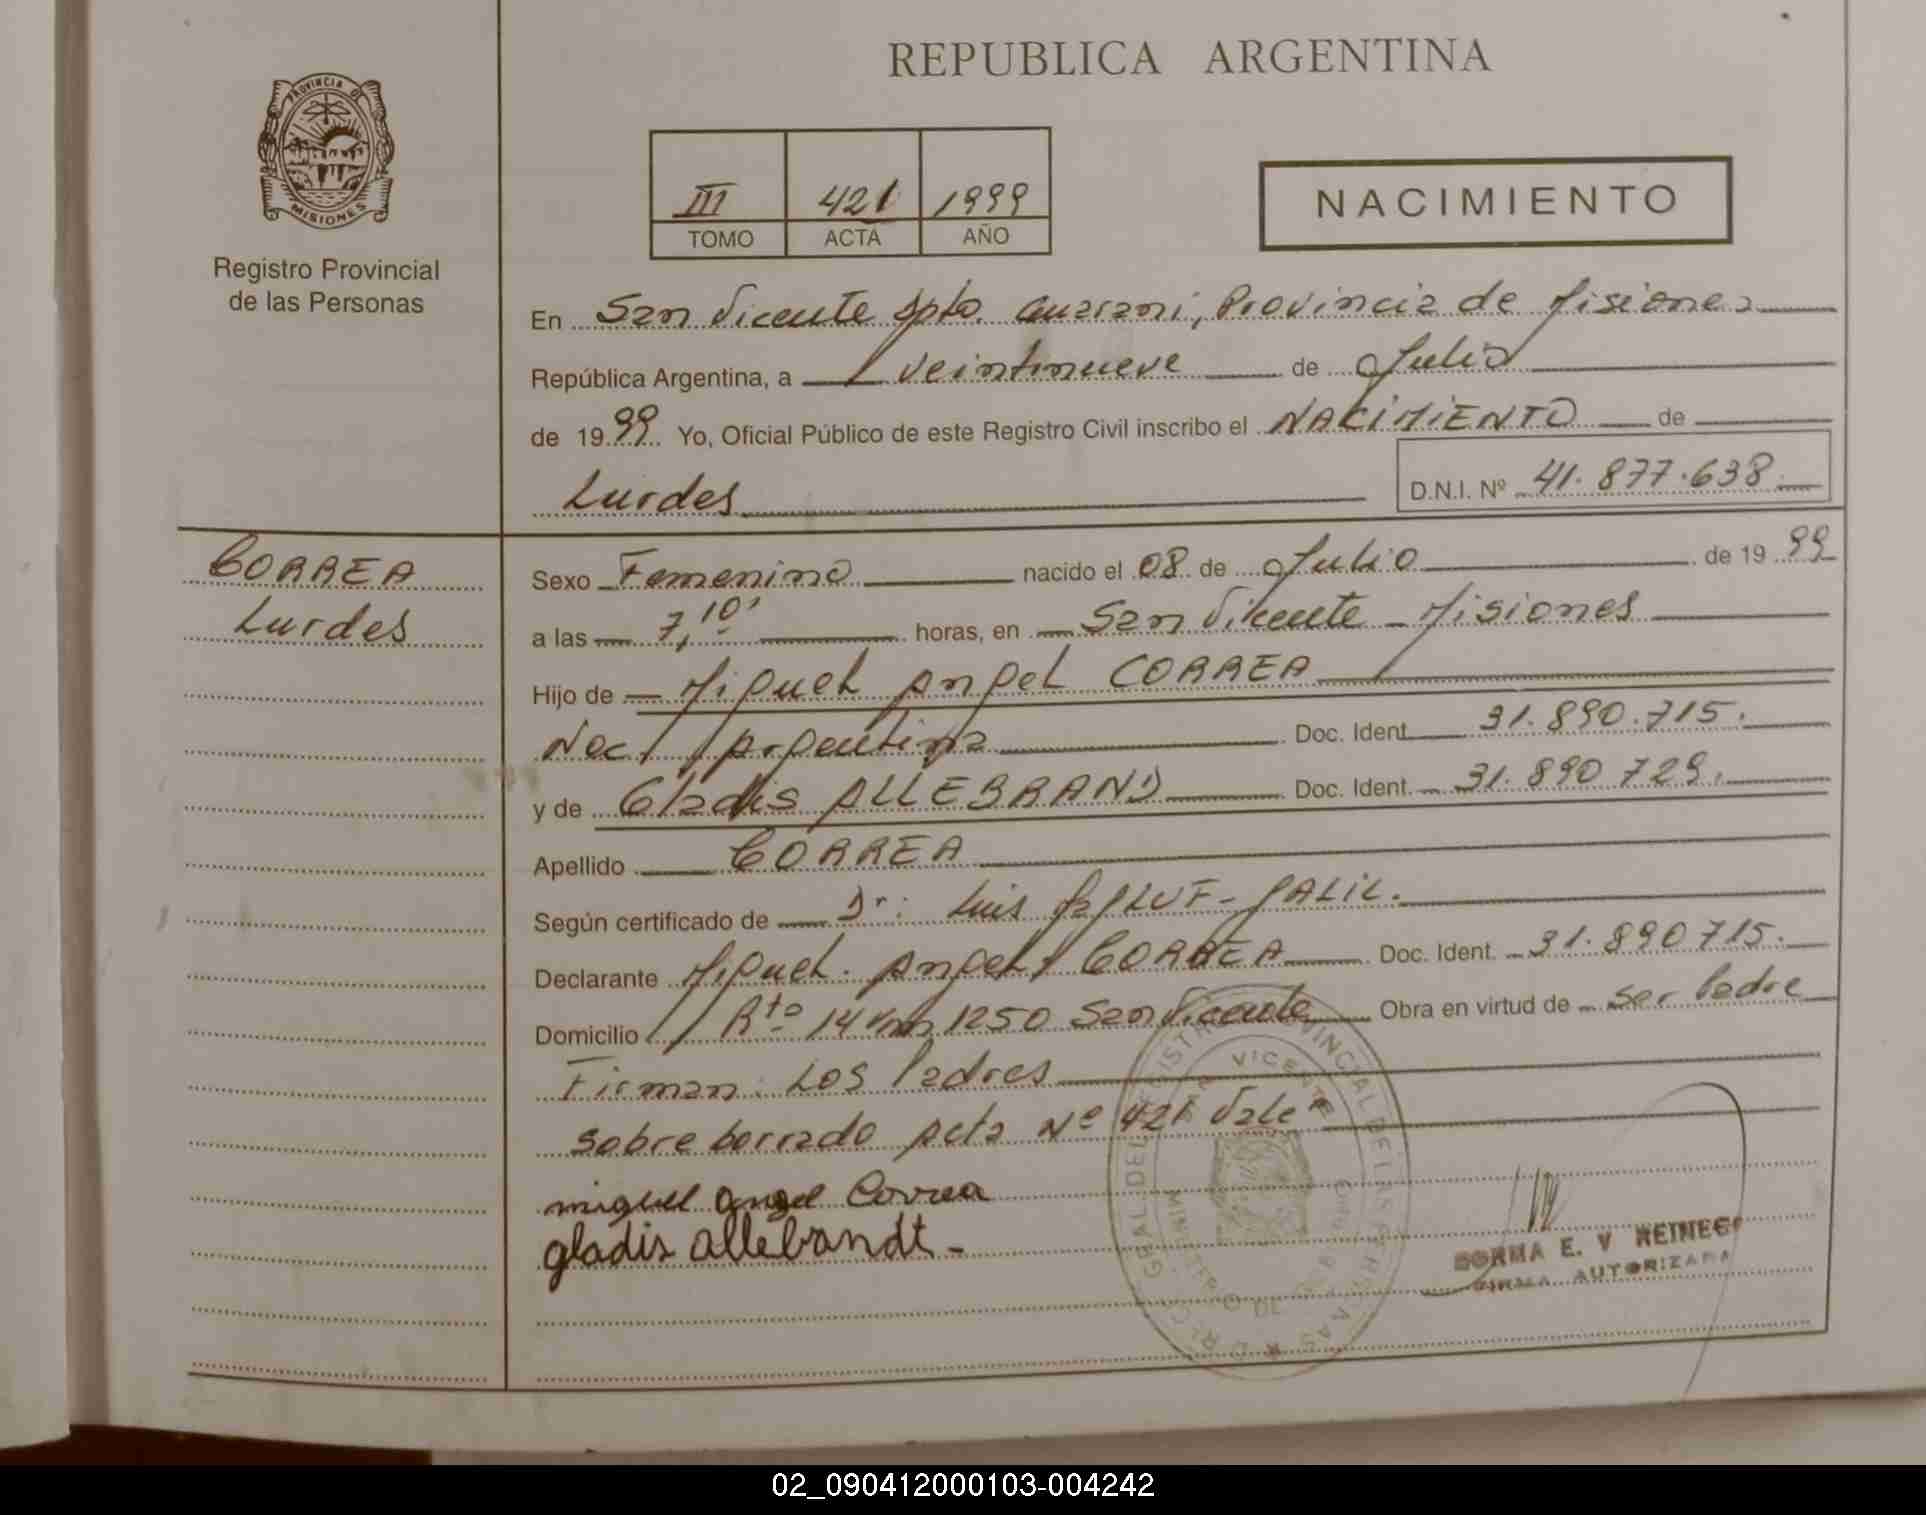 REPUBLICA ARGENTINA
PROVINCIA DE
MISIONES
Registro Provincial
de las Personas
III 421 1999
TOMO ACTA AÑO
NACIMIENTO
En San Vicente Dpto. Guarani, Provincia de Misiones
República Argentina, a veintinueve de Julio
de 1999 Yo, Oficial Público de este Registro Civil inscribo el NACIMIENTO de
Lurdes
D.N.I. Nº 41.877.638
CORREA
Lurdes
Sexo Femenino nacido el 08 de Julio de 1999
a las 7,10' horas, en San Vicente - Misiones
Hijo de Miguel Angel CORREA
Nac. Argentina Doc. Ident. 31.890.715.
y de Gladis ALLEBRAND Doc. Ident. 31.890.729.
Apellido CORREA
Según certificado de Dr: Luis JALIL.
Declarante Miguel Angel CORREA Doc. Ident. 31.890715.
Domicilio Rta 14 km 1250 San Vicente Obra en virtud de ser Padre
Firman: Los Padres
sobre borrado Acta Nº 421 Vale
miguel angel Correa
gladis allebrandt -
NORMA E. V REINEC
FIRMA AUTORIZADA
02_090412000103-004242